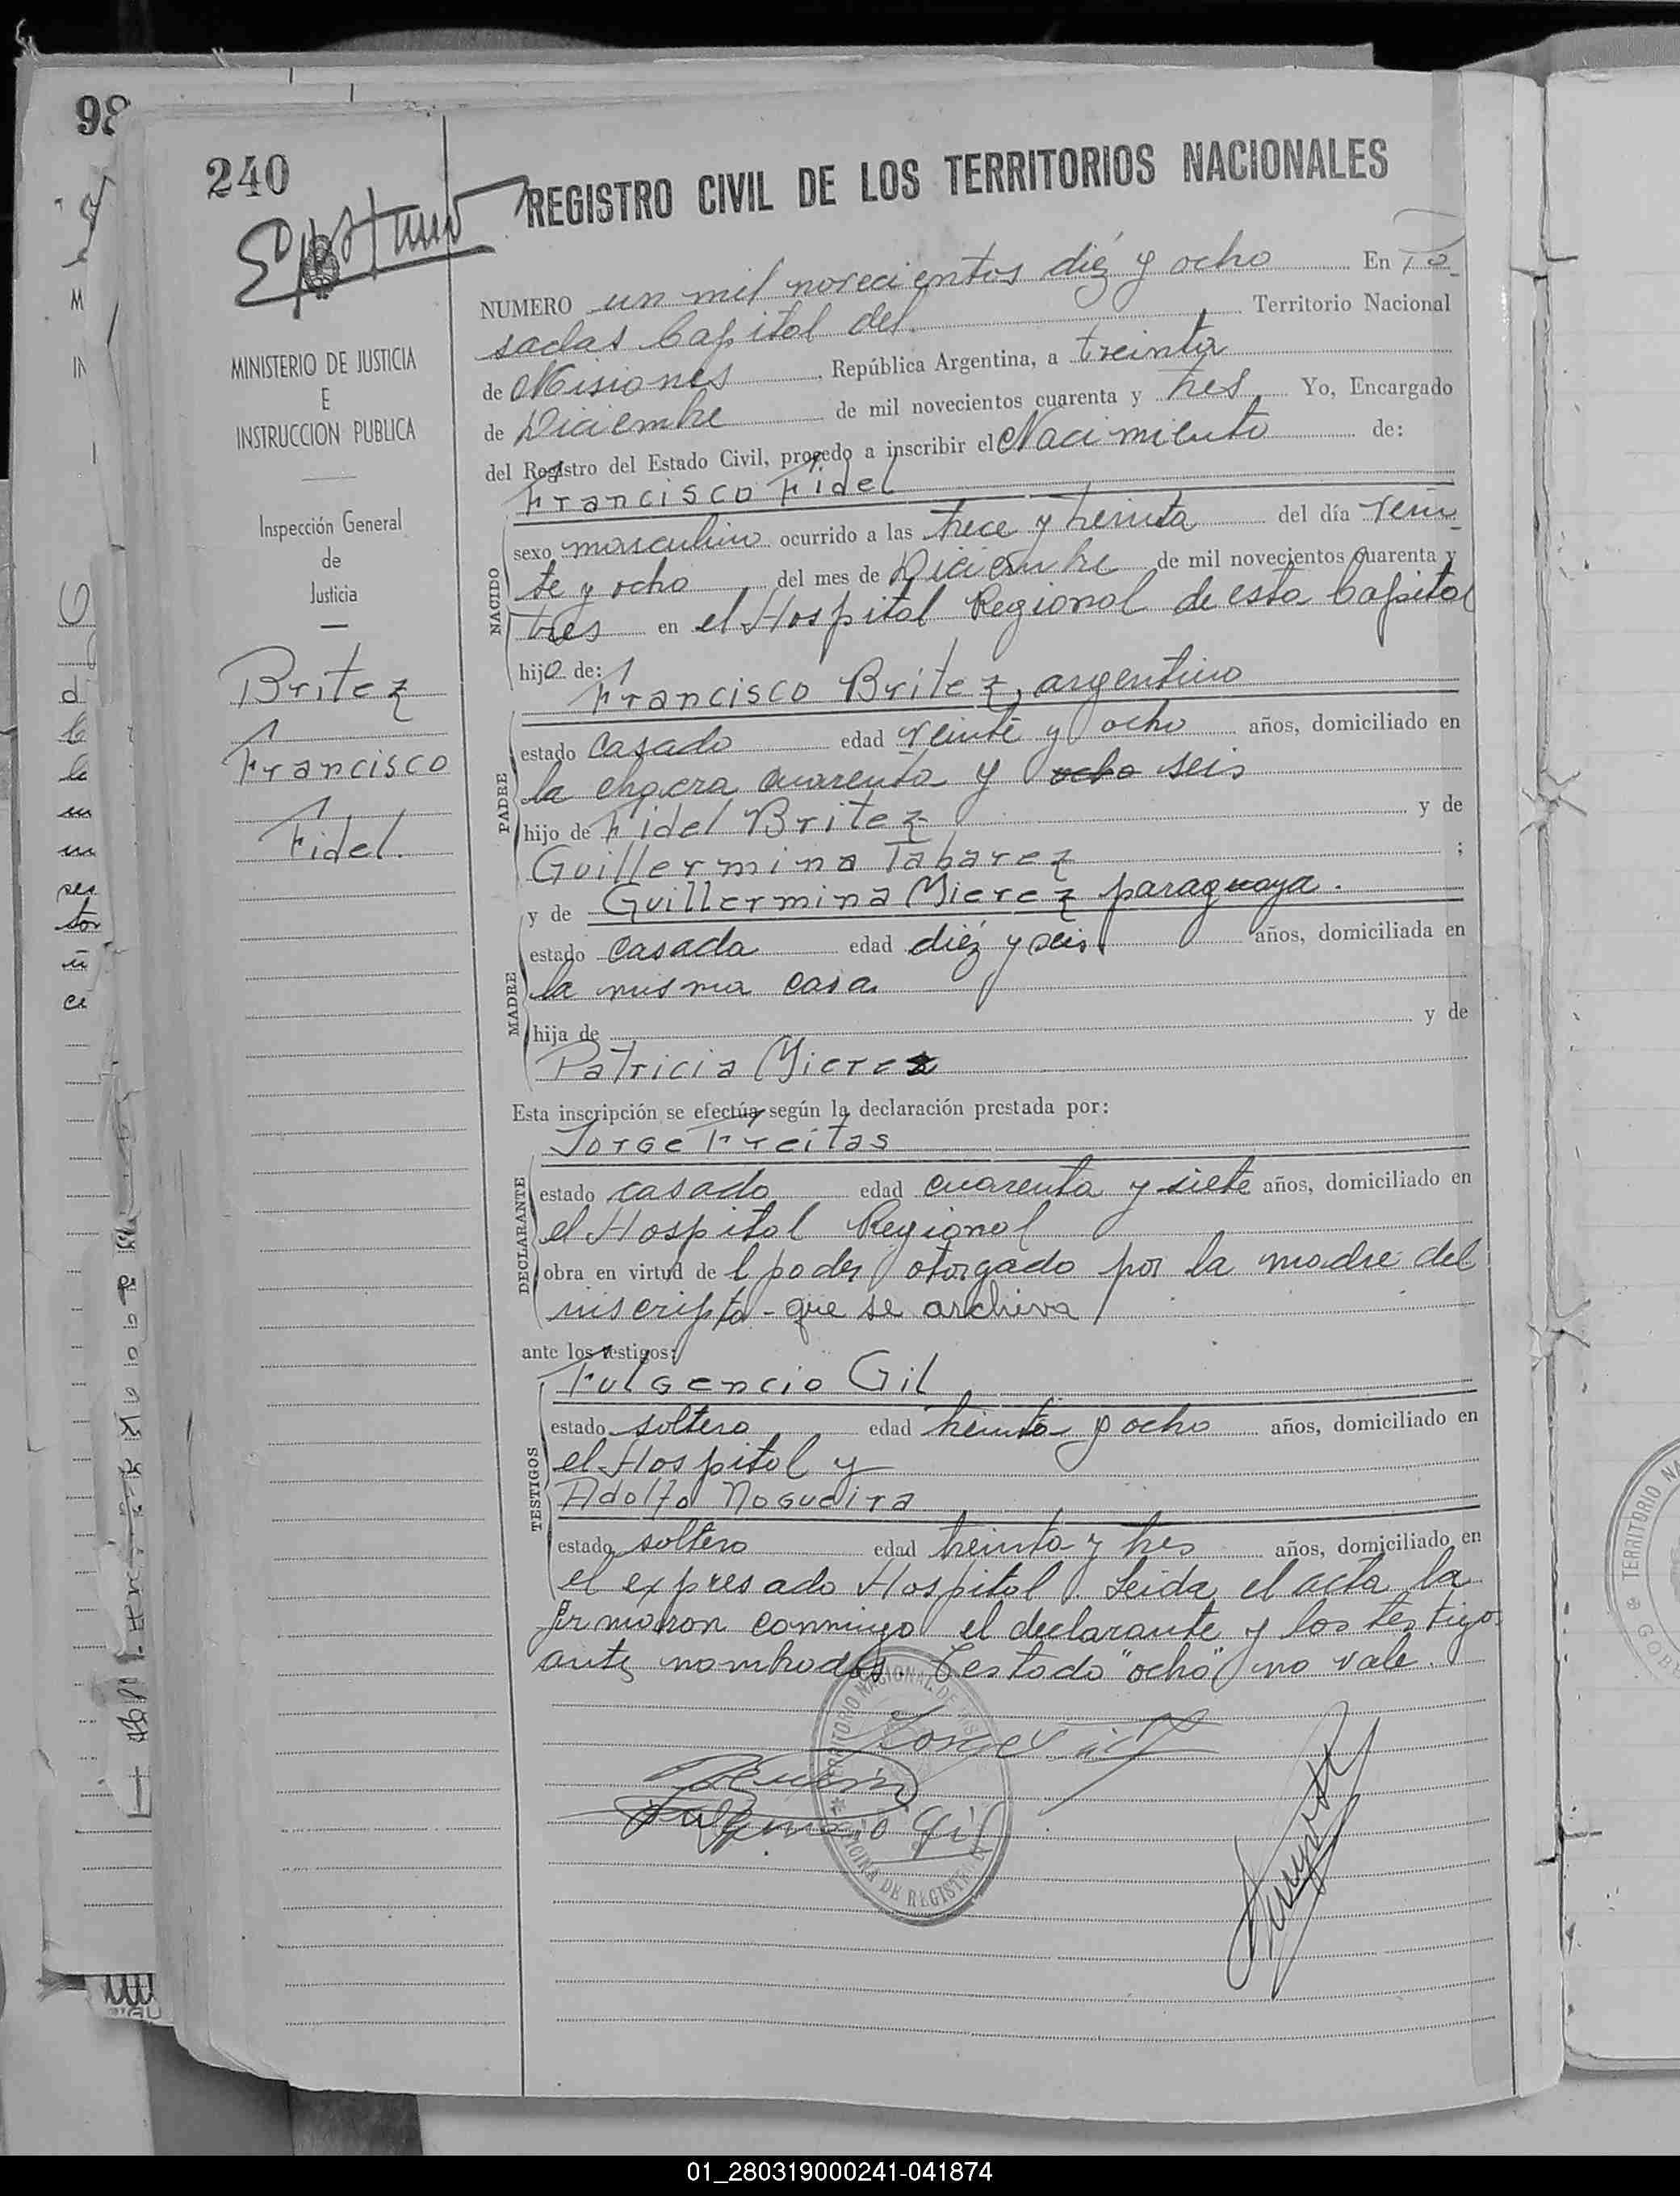 98
240
REGISTRO CIVIL DE LOS TERRITORIOS NACIONALES
NUMERO un mil novecientos diéz y ocho En Po
sadas Capital del Territorio Nacional
de Misiones, República Argentina, a treinta
de Diciembre de mil novecientos cuarenta y tres Yo, Encargado
del Registro del Estado Civil, procedo a inscribir el Nacimiento de:
Francisco Fidel
MINISTERIO DE JUSTICIA
E
INSTRUCCION PUBLICA
Inspección General
de
Justicia
Britez
Francisco
Fidel.
NACIDO
sexo masculino ocurrido a las trece y treinta del día vein
te y ocho del mes de Diciembre de mil novecientos cuarenta y
tres en el Hospital Regional de esta Capital
hijo de:
Francisco Britez, argentino
PADRE
estado casado edad veinte y ocho años, domiciliado en
la chacra cuarenta y ocho seis
hijo de Fidel Britez y de
Guillermina Tabarez ;
y de Guillermina Mierez paraguaya.
MADRE
estado casada edad diéz y seis años, domiciliada en
la misma casa
hija de y de
Patricia Mierez
Esta inscripción se efectúa según la declaración prestada por:
Jorge Freitas
DECLARANTE
estado casado edad cuarenta y siete años, domiciliado en
el Hospital Regional
obra en virtud de l poder otorgado por la madre del
inscripto - que se archiva
ante los testigos:
Fulgencio Gil
TESTIGOS
estado soltero edad treinta y ocho años, domiciliado en
el Hospital y
Adolfo Nogueira
estado soltero edad treinta y tres años, domiciliado en
el expresado Hospital. Leida el acta la
firmaron conmigo el declarante y los testigos
antes nombrados. Testado "ocho" no vale.
TERRITORIO NACIONAL DE
OFICINA DE REGISTRO
Fulgencio Gil
TERRITORIO NA
GOBE
01_280319000241-041874